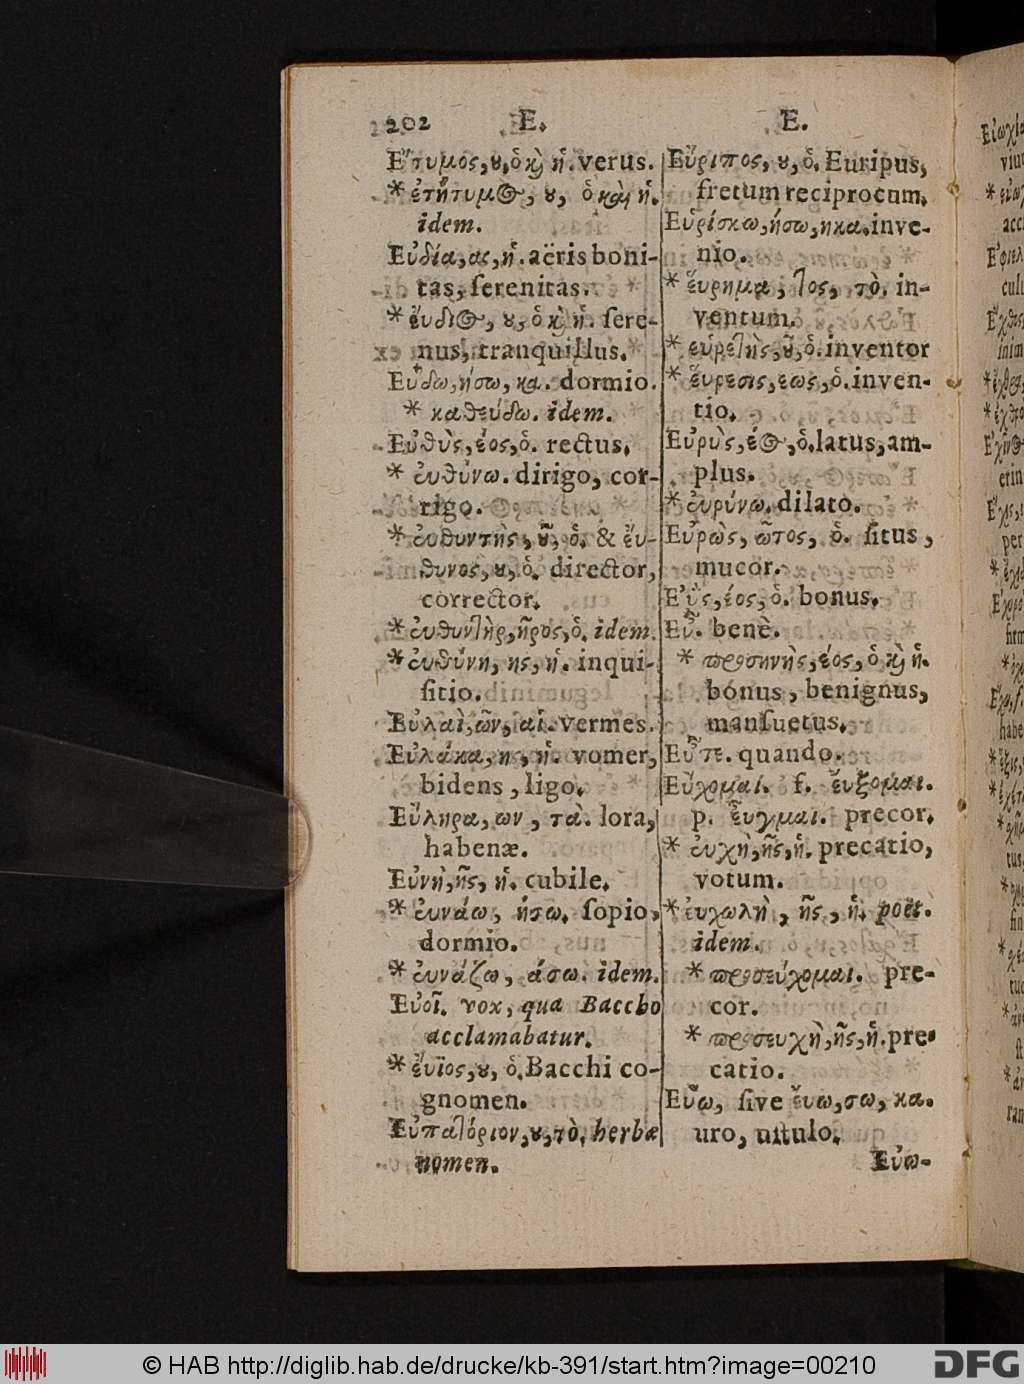 202 E. E.
Ἔτυμος, ȣ, ὁ καὶ ἡ. verus.
* ἐτήτυμος, ȣ, ὁ καὶ ἡ.
idem.
Εὐδία, ας, ἡ. aëris boni-
tas, ſerenitas.
* ἔυδιος, ȣ, ὁ καὶ ἡ. ſere-
nus, tranquillus.
Εὕδω, ήσω, κα. dormio.
* καθεύδω. idem.
Εὐθὺς, έος, ὁ. rectus.
* ἐυθύνω. dirigo, cor-
rigo.
* ἐυθυντὴς, ȣ͂, ὁ. & ἔυ-
θυνος, ȣ, ὁ. director,
corrector.
* ἐυθυντὴρ, ῆρος, ὁ. idem.
* ἐυθύνη, ης, ἡ. inqui-
ſitio.
Εὐλαὶ, ῶν, αἱ. vermes.
Εὐλάκα, ης, ἡ. vomer,
bidens, ligo.
Εὔληρα, ων, τὰ. lora,
habenæ.
Εὐνὴ, ῆς, ἡ. cubile.
* ἐυνάω, ήσω. ſopio,
dormio.
* ἐυνάζω, άσω. idem.
Εὐοῖ. vox, qua Baccho
acclamabatur.
* ἔυϊος, ȣ, ὁ. Bacchi co-
gnomen.
Εὐπατόριον, ȣ, τὸ. herbæ
nomen.
Εὔριπος, ȣ, ὁ. Euripus,
fretum reciprocum.
Εὑρίσκω, ήσω, ηκα. inve-
nio.
* ἕυρημα, τος, τὸ. in-
ventum.
* εὑρετὴς, ȣ͂, ὁ. inventor
* ἕυρεσις, εως, ὁ. inven-
tio.
Εὐρὺς, έος, ὁ. latus, am-
plus.
* ἐυρύνω. dilato.
Εὐρὼς, ῶτος, ὁ. ſitus,
mucor.
Εʼΰς, έος, ὁ. bonus.
Εὖ. benè.
* προσηνὴς, έος, ὁ καὶ ἡ.
bonus, benignus,
manſuetus.
Εὖτε. quando.
Εὔχομαι. f. ἔυξομαι.
p. ἦυγμαι. precor.
* ἐυχὴ, ῆς, ἡ. precatio,
votum.
* ἐυχωλὴ, ῆς, ἡ. poët.
idem.
* προσεύχομαι. pre-
cor.
* προσευχὴ, ῆς, ἡ. pre-
catio.
Εὕω, ſive ἔυω, σω, κα.
uro, uſtulo.
Εὐω-
© HAB http://diglib.hab.de/drucke/kb-391/start.htm?image=00210
DFG